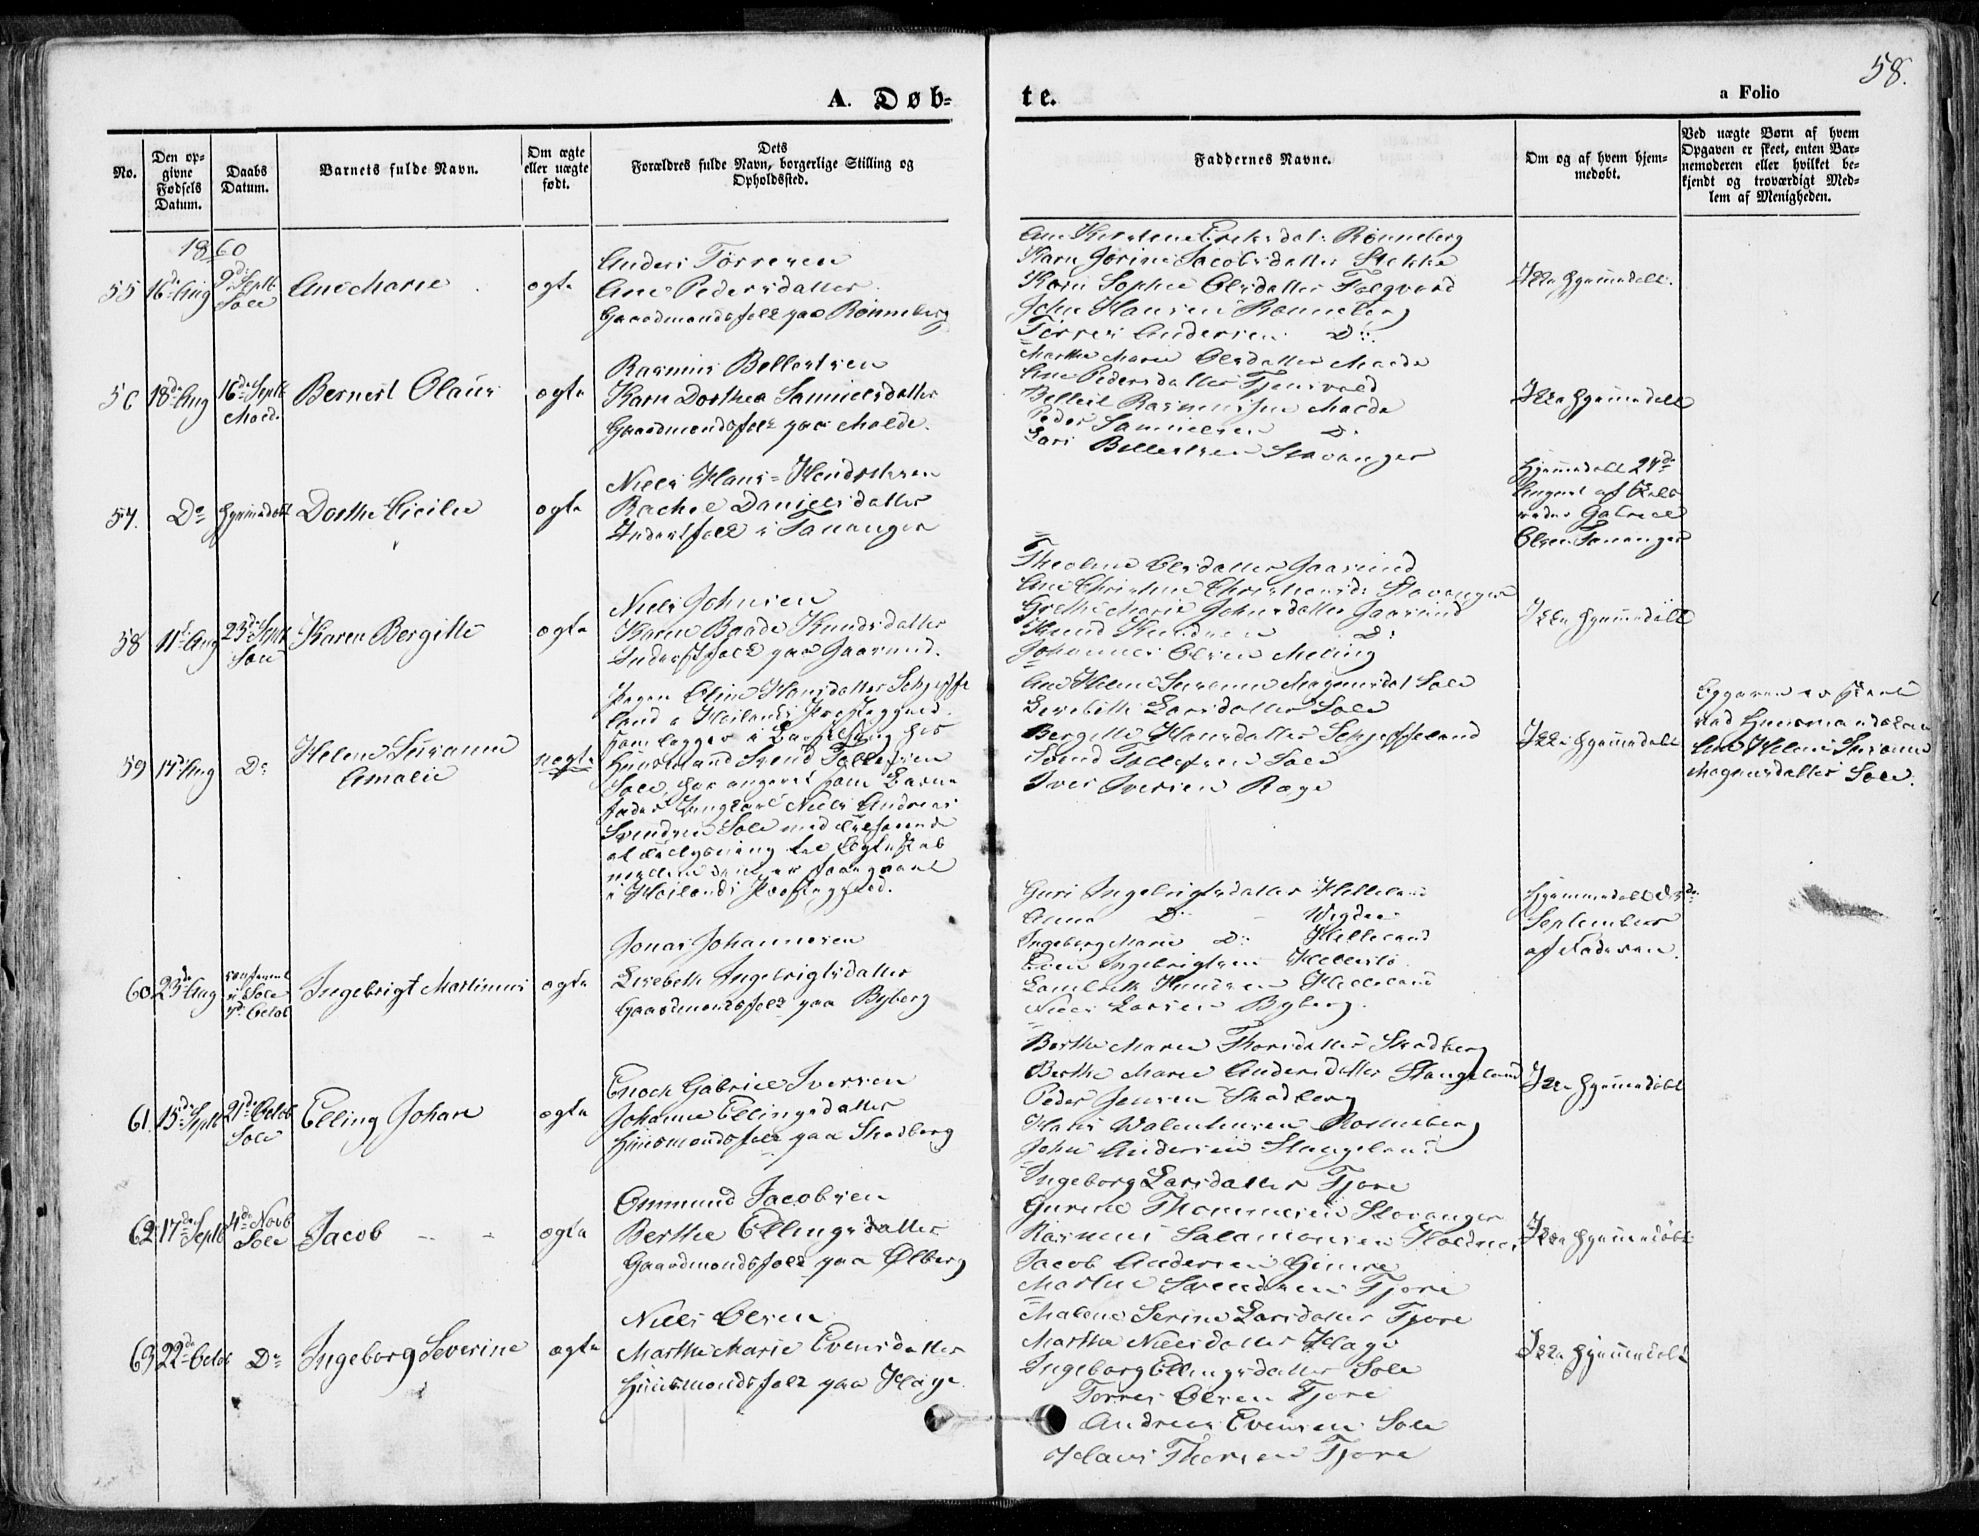 58.
A. Døb=
te.
a Folio
No.
Den op=
givne
Fødsels
Datum.
Daabs
Datum.
Barnets fulde Navn.
Om ægte
eller uægte
født.
Dets
Forældres fulde Navn, borgerlige Stilling og
Opholdssted.
Faddernes Navne.
Om og af hvem hjem=
medøbt.
Ved uægte Børn af hvem
Opgaven er skeet, enten Bar=
nemoderen eller hvilket be=
kjendt og troværdigt Med=
lem af Menigheden.
1860
55
16de Aug
9de Septb
Sole
Ane Marie
ægte
Anders Torresen
Ane Pedersdatter
Gaardmandsfolk paa Rønneberg
Ane Kirstine Eriksdat: Rønneberg
Karn Jorine Jacobsdatter Stokke
Karn Sophie Olsdatter Folgerød
John Hansen Rønneberg
Torres Andersen Do
Ikke hjemmedøbt.
56
18de Aug
16de Septb
Malde
Bernert Olaus
ægte
Rasmus Bellestsen
Karn Dorthea Samuelsdatter
Gaardmandsfolk paa Malde.
Marthe Marie Olsdatter Malde
Ane Pedersdatter Tjensvold
Rasmussen Malde
Peder Samuelsen Do
Lars Bellestsen Stavanger
Ikke hjemmedøbt
57.
Do
hjemmedøbt
Dorthe Cicilie
ægte
Niels Hans=Hendriksen
Rachel Danielsdatter
Inderstfolk i Tananger
Hjemmedøbt 27de
August af
Gabriel
Olsen Tananger
58
11te Aug
23de Septb
Sole
Karen Bergitte
ægte
Niels Johnsen
Karen Baade Knudsdatter
Inderstfolk paa Jaasund.
Theoline Olsdatter Jaasund
Ane Christine Christiansd: Stavanger
Grethe Marie Johnsdatter Jaasund
Knud Knudsen Do
Johannes Olsen Meling
Ikke hjemmedøbt
59
17de Aug
Do
Helene Susanne
Amalie
uægte
Pigen Eline Hansdatter Schjeffe
land i Høilands Præstegjeld.
som ligger i Barselseng hos
Huusmand Svend Tollefsen
Sole, har angivet som Barne
fader Ungkarl Niels Andreas
Svendsen Sole med
at Lysning til Ægteskab
mellem dem er foregaaet
i Høilands Præstegjeld.
Ane Helene Susanne Magnusdat Sole
Lisebeth Larsdatter Sole
Bergitte Hansdatter Schjeffeland
Svend Tollefsen Sole
Iver Iversen Rage
Ikke hjemmedøbt
Opgaven er skeet
ved Huusmandskone
Ane Helene Susanne
Magnusdatter Sole.
60
23de Aug
confirmeret
i Sole
7de Octob
Ingebrigt Martinus
ægte
Jonas Johannesen
Lisebeth Ingebrigtsdatter
Gaardmandsfolk paa Byberg
Guri Ingebrigtsdatter Helleland
Anna Do Vigdel
Ingeborg Marie Do Helleland
Even Ingebrigtsen
Lambreth Knudsen Helleland
Niels Larsen Byberg.
Hjemmedøbt
September
af Faderen.
61
15de Septb
21de Octob
Sole
Elling Johan
ægte
Enoch Gabriel Iversen
Johanne Ellingsdatter
Huusmandsfolk paa Skadberg
Berthe Maren Thorsdatter Skadberg
Berthe Marie Andersdatter Stangeland
Peder Jensen Skadberg
Hans Valentinsen Rønneberg
John Andersen Stangeland
Ikke hjemmedøbt
62
17de Septb
4de Novb
Sole
Jacob
ægte
Ommund Jacobsen
Berthe Ellingsdatter
Gaardmandsfolk paa Ølberg
Ingeborg Larsdatter Tjore
Gurine Thommesen Stavanger
Rasmus Salamonsen
Jacob Andersen Gimre
Martin Svendsen Tjore
Ikke hjemmedøbt
63
22de Octob
Do
Ingeborg Severine
ægte
Niels Olsen
Marthe Marie Evensdatter
Huusmandsfolk paa Hage
Malene Serine Larsdatter Tjore
Marthe Nielsdatter Hage
Ingeborg Ellingsdatter Sole
Torres Olsen Tjore
Andreas Evensen Sole
Hans Thorsen Tjore
Ikke hjemmedøbt